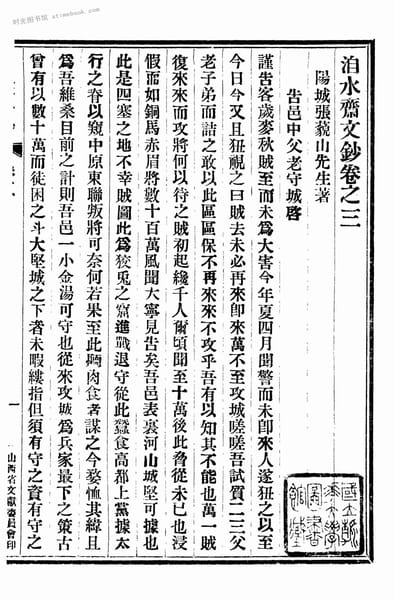 时光图书馆 xtimebook.com
洎水齋文鈔卷之三
陽城張藐山先生著
告邑中父老守城啓
謹告客歲麥秋賊至而未爲大害今年夏四月聞警而未卽來人遂狃之以至
今日今又且狃視之曰賊去未必再來卽來萬不至攻城嗟嗟吾試質二三父
老子弟而詰之敢以此區區保不再來來不攻乎吾有以知其不能也萬一賊
復來來而攻將何以待之賊初起纔千人爾頃聞至十萬後此脅從未已也浸
假而如銅馬赤眉將數十百萬風聞大寧見告矣吾邑表裏河山城堅可據也
此是四塞之地不幸賊圖此爲狡兎之窟進戰退守從此蠶食高都上黨據太
行之脊以窺中原東聯叛將可奈何若果至此則肉食者謀之今嫠恤其緯且
爲吾維桑目前之計則吾邑一小金湯可守也從來攻城爲兵家最下之策古
曾有以數十萬而徒困之斗大堅城之下者未暇縷指但須有守之資有守之
一
山西省文獻委員會印